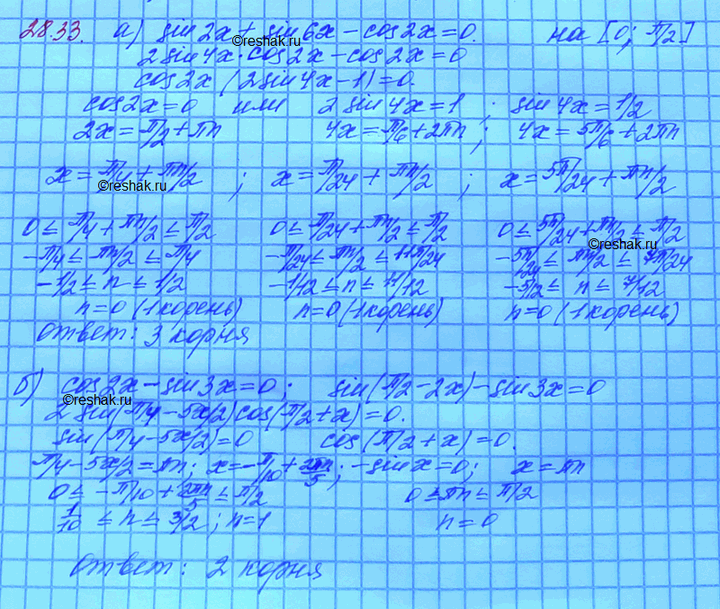 28.33. а) sin 2x + sin 6x − cos 2x = 0. на [0; π/2]
©reshak.ru
2 sin 4x · cos 2x − cos 2x = 0
cos 2x (2 sin 4x − 1) = 0.
cos 2x = 0 или 2 sin 4x = 1 ; sin 4x = 1/2
2x = π/2 + πn 4x = π/6 + 2πn ; 4x = 5π/6 + 2πn
x = π/4 + πn/2 ; x = π/24 + πn/2 ; x = 5π/24 + πn/2
©reshak.ru
0 ≤ π/4 + πn/2 ≤ π/2 0 ≤ π/24 + πn/2 ≤ π/2 0 ≤ 5π/24 + πn/2 ≤ π/2
©reshak.ru
−π/4 ≤ πn/2 ≤ π/4 −π/24 ≤ πn/2 ≤ 11π/24 −5π/24 ≤ πn/2 ≤ 7π/24
−1/2 ≤ n ≤ 1/2 −1/12 ≤ n ≤ 11/12 −5/2 ≤ n ≤ 7/12
n = 0 (1 корень) n = 0 (1 корень) n = 0 (1 корень)
ответ: 3 корня
б) cos 2x − sin 3x = 0 ; sin(π/2 − 2x) − sin 3x = 0
©reshak.ru
2 sin(π/4 − 5x/2) cos(π/2 + x) = 0.
sin(π/4 − 5x/2) = 0 cos(π/2 + x) = 0.
π/4 − 5x/2 = πn ; x = −π/10 + 2πn/5 ; −sin x = 0 ; x = πn
0 ≤ −π/10 + 2πn/5 ≤ π/2 0 ≤ πn ≤ π/2
1/10 ≤ n ≤ 3/2 ; n = 1 n = 0
ответ: 2 корня